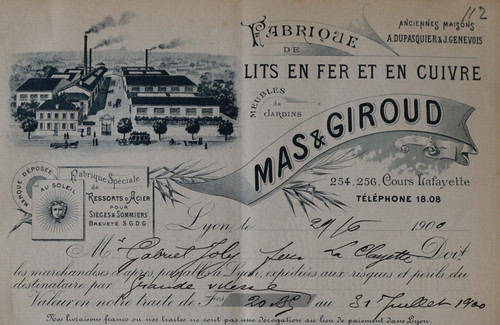 112
ANCIENNES MAISONS
A. DUPASQUIER & J. GENEVOIS
FABRIQUE
DE
LITS EN FER ET EN CUIVRE
MEUBLES
de
JARDINS
MAS & GIROUD
254, 256, Cours Lafayette
TÉLÉPHONE 18.08
MARQUE DÉPOSÉE
AU SOLEIL
Fabrique Spéciale
DE
RESSORTS D'ACIER
POUR
SIÈGES & SOMMIERS
BREVETÉ S.G.D.G.
Lyon, le 1900
Mr Gabriel Joly La Clayette Doit
les marchandises ci-après payables à Lyon, expédiées aux risques et périls du
destinataire par Grande vitesse
Valeur en notre traite de Frs au 31 Juillet 1900
Nos livraisons franco ou nos traites ne sont pas une dérogation au lieu de paiement dans Lyon.